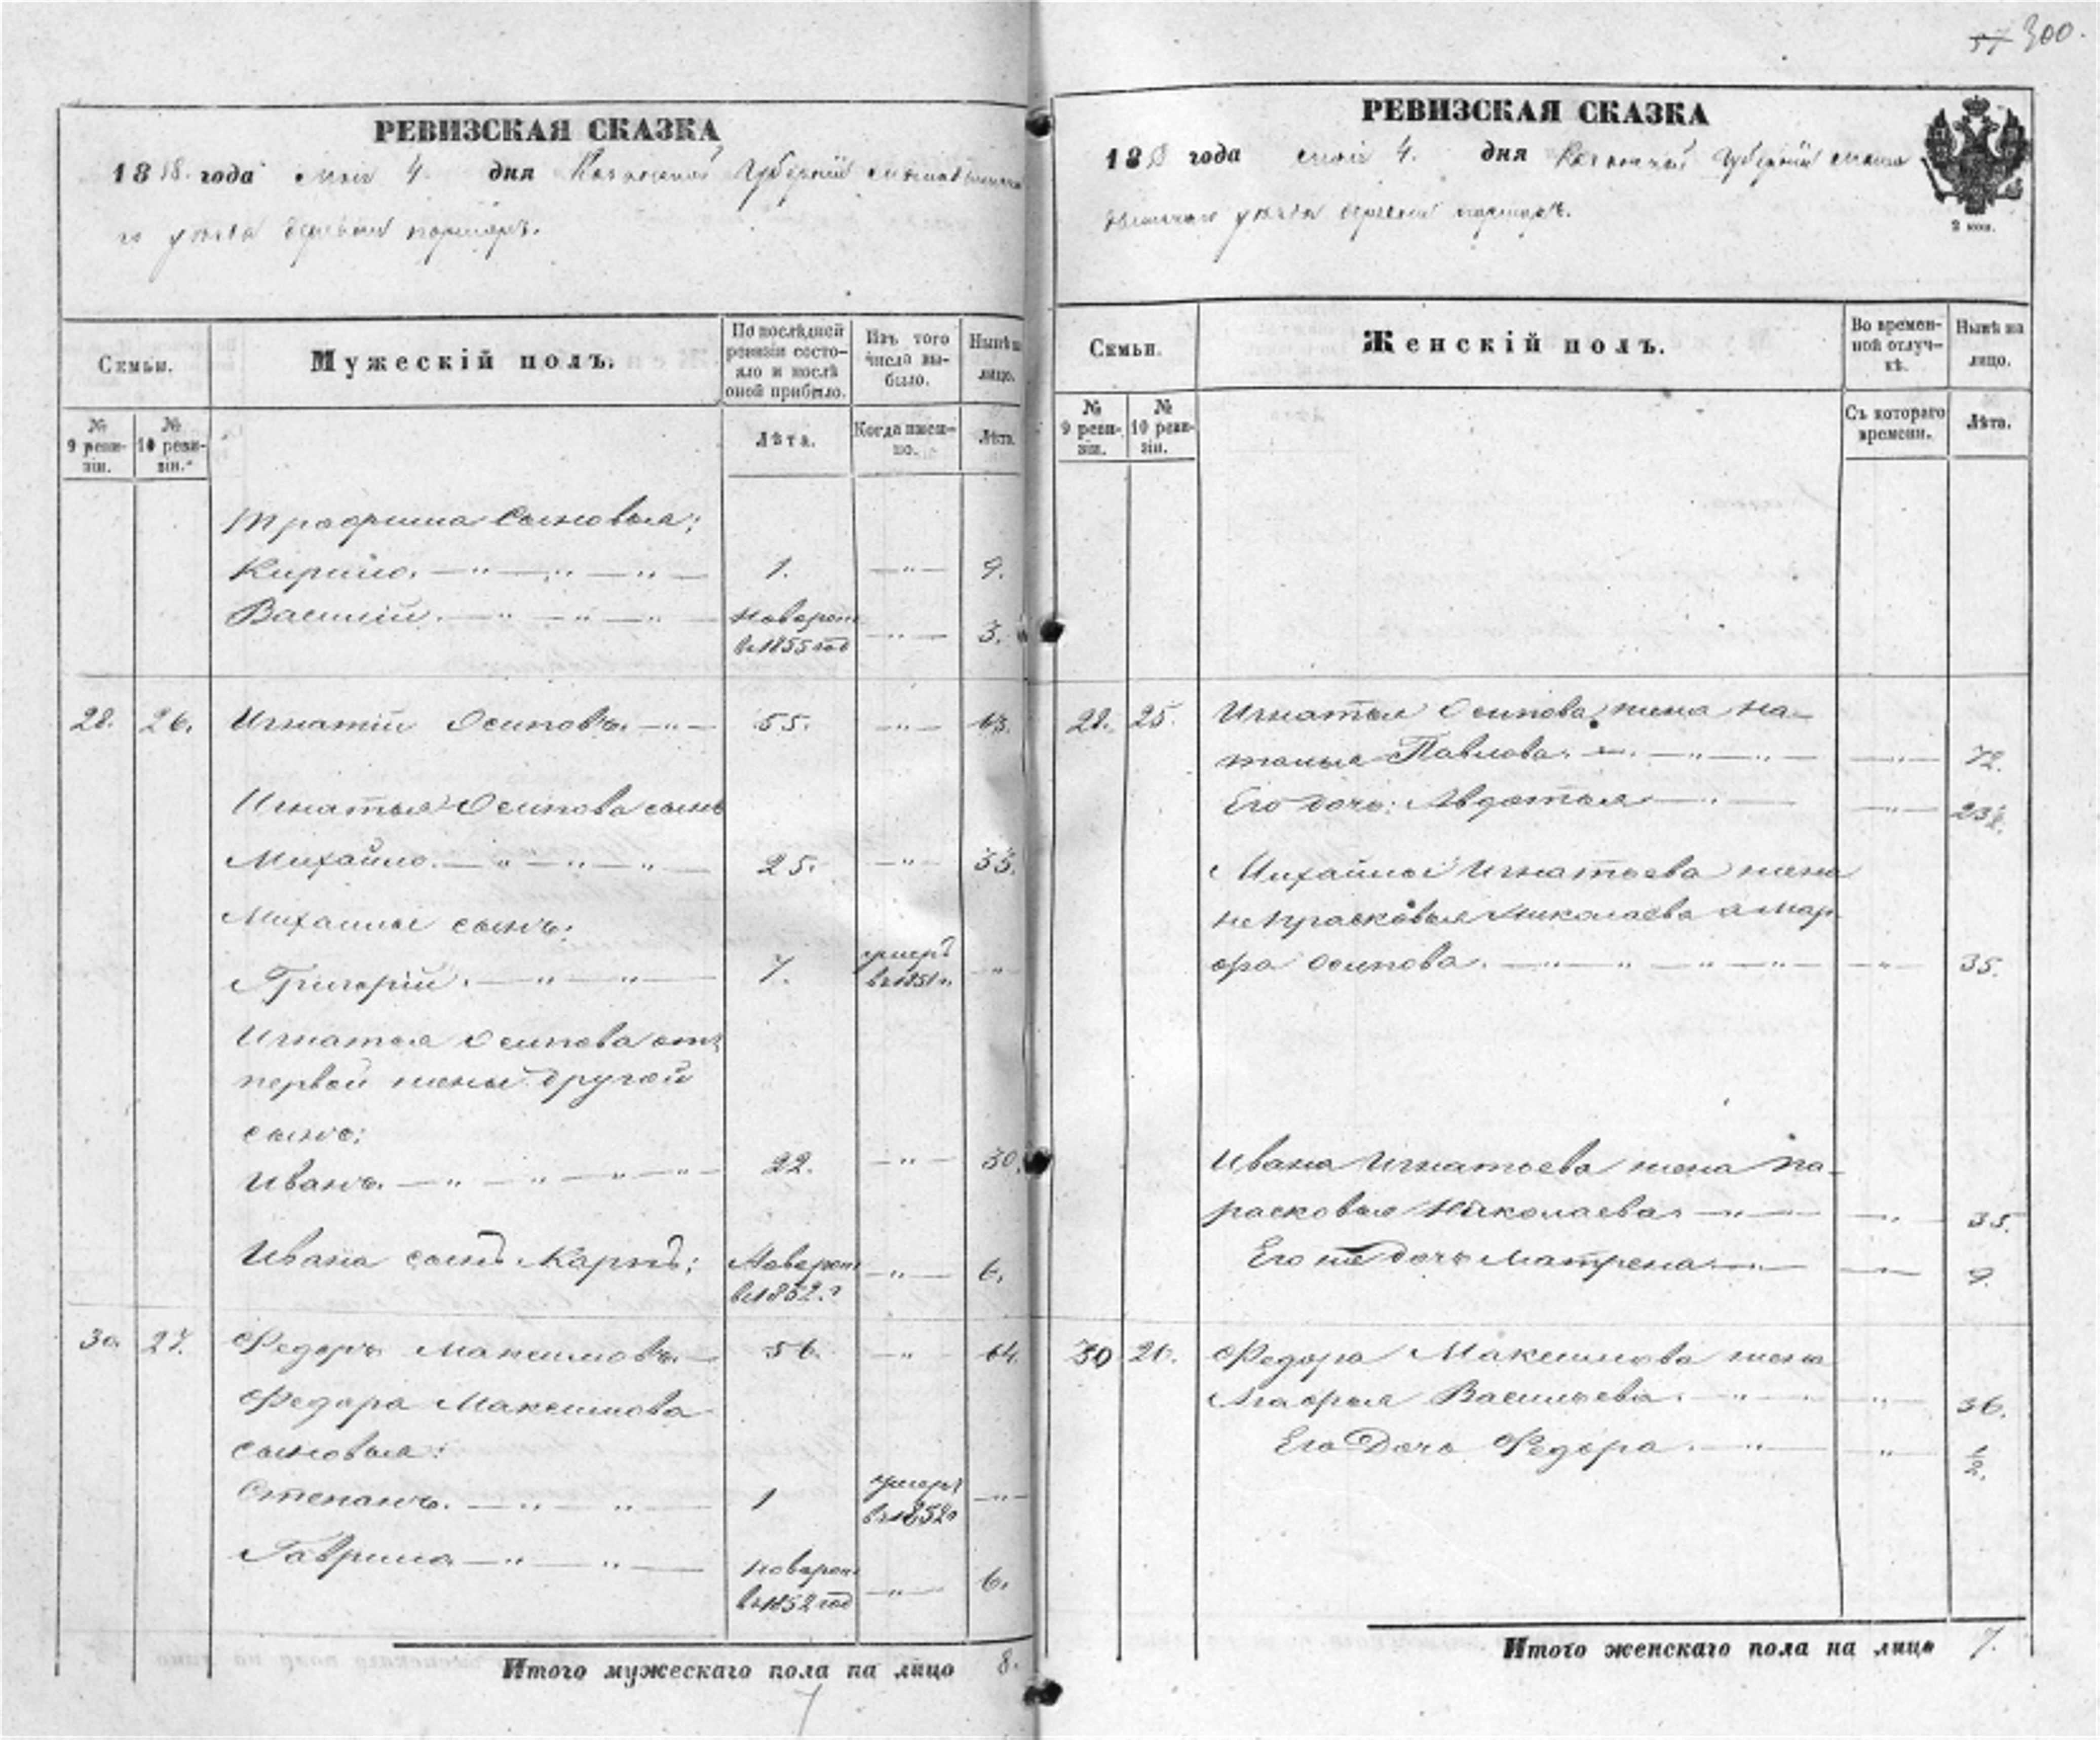 300.
РЕВИЗСКАЯ СКАЗКА
1858. года мая 4 дня Казанской Губернии
го уезда деревни
Семьи.
Мужескій полъ.
По послѣдней ревизіи состояло и послѣ оной прибыло.
Изъ того числа выбыло.
Нынѣ на лицо.
№ 9 ревизіи.
№ 10 ревизіи.
Лѣта.
Когда именно.
Лѣта.
Трофима сыновья:
Кирило. 1. 9.
Василій. новорож
въ 1855 год 3.
28. 26. Игнатій Осиповъ. 55. 63.
Игнатья Осипова сынъ
Михайло. 25. 33.
Михайлы сынъ:
Григорій. 7. умеръ
въ 1851 г.
Игнатья Осипова отъ
первой жены другой
сынъ:
Иванъ. 22. 30.
Ивана сынъ Карпъ; новорож
въ 1852. г 6.
30. 27. Федоръ Максимовъ. 56. 64.
Федора Максимова
сыновья:
Степанъ. 1 умеръ
въ 1852 г
Гаврила новорож
въ 1852 год 6.
Итого мужескаго пола на лицо 8.
7
РЕВИЗСКАЯ СКАЗКА
185 года мая 4. дня Казанской Губернии
уезда деревни
2 коп.
Семьи.
Женскій полъ.
Во временной отлучкѣ.
Нынѣ на лицо.
№ 9 ревизіи.
№ 10 ревизіи.
Съ котораго времени.
Лѣта.
28. 25. Игнатья Осипова жена На-
талья Павлова. 72.
Его дочь: Авдотья
Михайлы Игнатьева жена
не Прасковья Николаева а Мар
фа Осипова. 35.
Ивана Игнатьева жена Па-
расковья Николаева. 35.
Его же дочь Матрена 9.
30 26. Федора Максимова жена
Агафья Васильева. 36.
Его Дочь Федора. 1/2.
Итого женскаго пола на лицо 7.